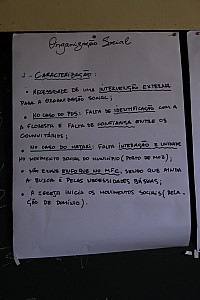 Organização Social
1 - CARACTERIZAÇÃO:
• NECESSIDADE DE UMA INTERVENÇÃO EXTERNA
PARA A ORGANIZAÇÃO SOCIAL;
• NO CASO DO PDS: FALTA DE IDENTIFICAÇÃO COM A
A FLORESTA E FALTA DE CONFIANÇA ENTRE OS
COMUNITÁRIOS;
• NO CASO DO MATARI: FALTA INTERAÇÃO E UNIDADE
NO MOVIMENTO SOCIAL DO MUNICÍPIO (PORTO DE MOZ);
• NÃO EXISTE ENFOQUE NO MFC, SENDO QUE AINDA
A BUSCA É PELAS NECESSIDADES BÁSICAS;
• A IGREJA INICIA OS MOVIMENTOS SOCIAIS (RELA-
ÇÃO DE DOMÍNIO).